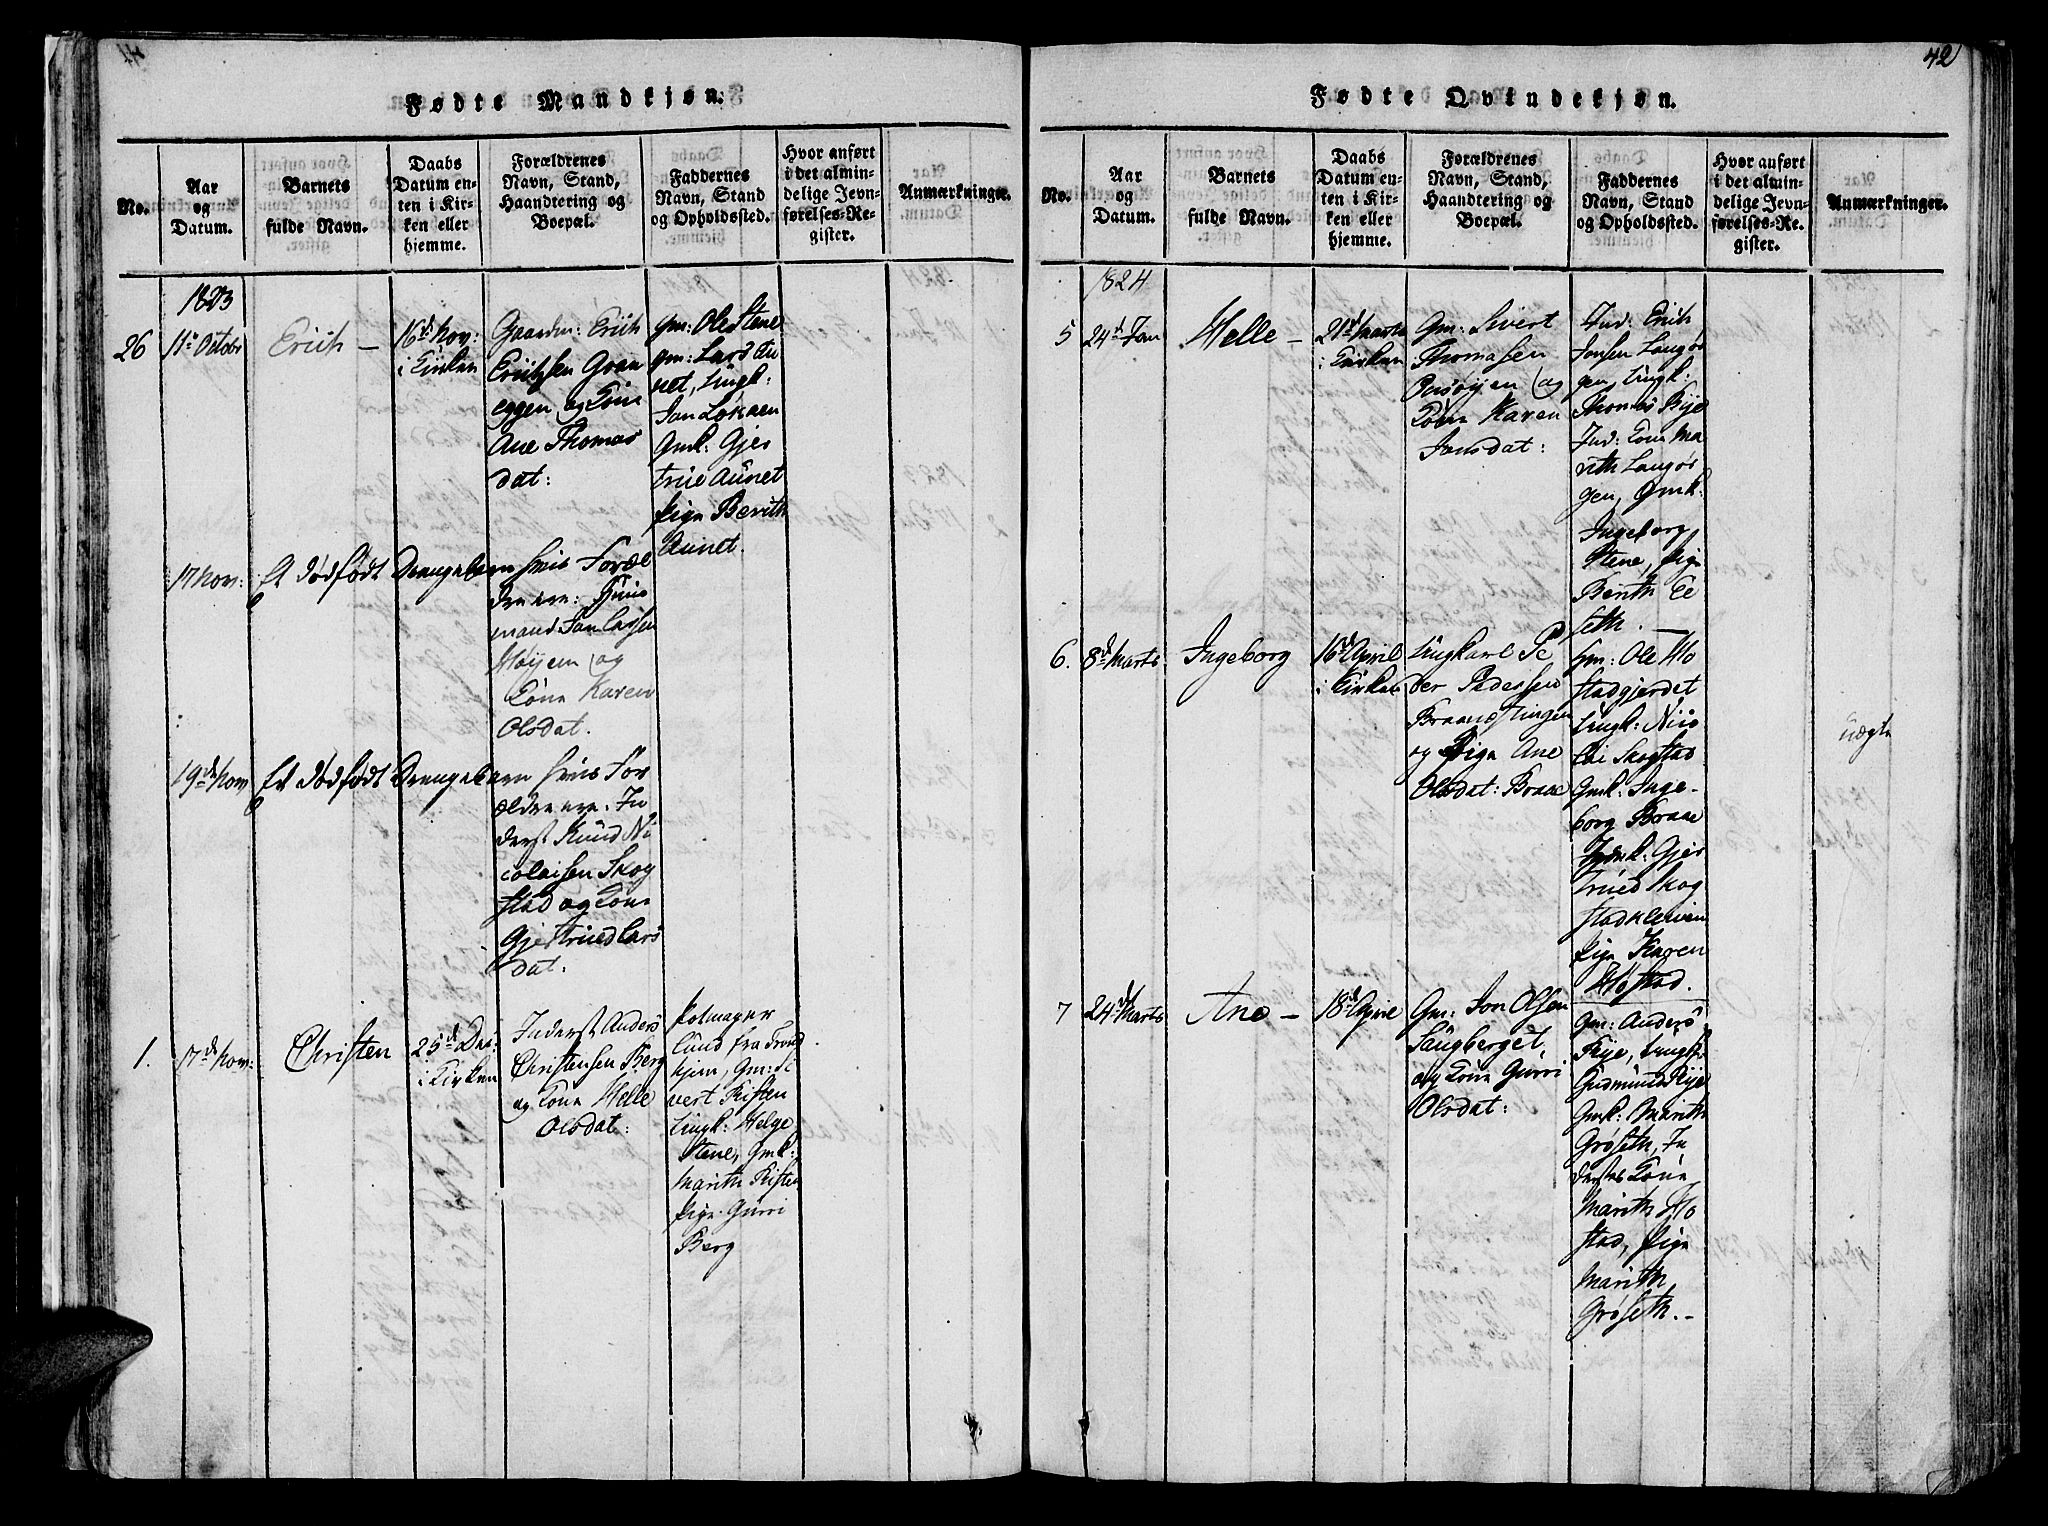 Fødte Mandkjøn.
No.
Aar
og
Datum.
Barnets
fulde Navn.
Daabs
Datum en-
ten i Kir-
ken eller
hjemme.
Forældrenes
Navn, Stand,
Haandtering og
Boepæl.
Faddernes
Navn, Stand
og Opholdssted.
Hvor anført
i det almin-
delige Jevn-
førelses-Re-
gister.
Anmærkninger.
1823
26
11te Octobr
Erich —
16de Nov:
i Kirken
Gaardm: Erich
Erichsen Gran
eggen og Kone
Ane Thomas
dat:
Gm: Ole Stene
gm: Lars Au
net, Ungk:
Jon Løkaen
Gmk: Gjer
true Aunet
Pige Berith
Aunet.
17 Nov:
Et dødfødt Drengebarn hvis Foræl
dre ere: Huus
mand Jon Larsen
Møyem og
Kone Karen
Olsdat.
19de Nov
Et dødfødt Drengebarn hvis For
ældre ere: In
derst Knud Ni
colaisen Skog
stad og Kone
Gjertrued Lars
dat.
1.
17de Nov:
Christen
25de Dec:
i Kirken
Inderst Anders
Christensen Berg
og Kone Helle
Olsdat:
Lund fra Trond
hjem, Gm: Si
vert Risten
Ungk: Helge
Stene, Gmk:
Marith Risten
Pige Gurri
Berg
42
Fødte Qvindekjøn.
No.
Aar
og
Datum.
Barnets
fulde Navn.
Daabs
Datum en-
ten i Kir-
ken eller
hjemme.
Forældrenes
Navn, Stand,
Haandtering og
Boepæl.
Faddernes
Navn, Stand
og Opholdssted.
Hvor anført
i det almin-
delige Jevn-
førelses-Re-
gister.
Anmærkninger.
1824
5
24de Jan
Helle —
21de Marts
i Kirken
Gm: Sivert
Thomasen
og
Kone Karen
Jonsdat:
Ind: Erich
Jonsen Langør
gen, Ungk:
Thomas Rye
Ind: Kone Ma
rith Langør
gen, Gmk:
Ingeborg
Stene, Pige
Berith Ee
seth. —
6.
8de Marts
Ingeborg
16de April
i Kirken
Ungkarl Pe
der Pedersen
Braanæslingen
og Pige Ane
Olsdat: Braae
Gm: Ole Ho
stadgjerdet
Ungk: Nico
lai Skogstad
Gmk: Inge-
borg Braae
Gjer
trued Skog
stadkleiven
Pige Karen
Høstad.
uægte
7
24de Marts
Ane —
18de Aprie
Gm: Jon Olsen
Saugberget
og Kone Gurri
Olsdat:
Gm: Anders
Rye, Ungk:
Gudmund Rye
Gmk: Marith
Grøseth, In
derstes Kone
Marith Ho
stad, Pige
Marith
Grøseth. —